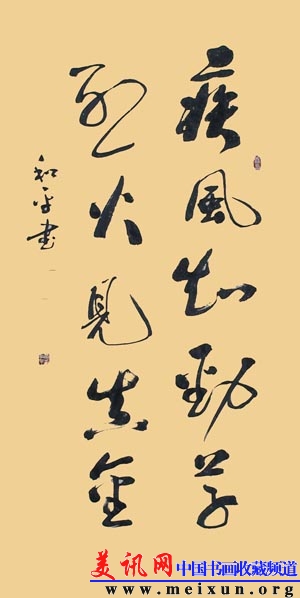 疾風知勁草
烈火見真金
和平書
美讯网 中国书画收藏频道
www.meixun.org